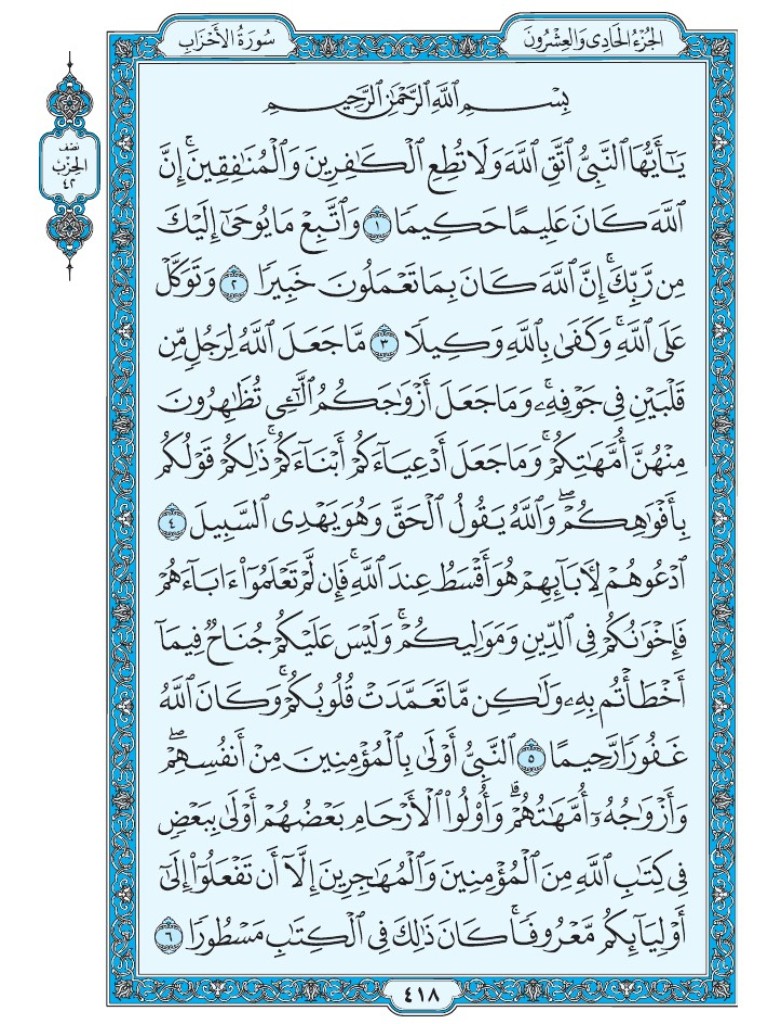 الجُزْءُ الحَادِي وَالعِشْرُونَ
سُورَةُ الأَحْزَابِ
نصف
الحزب
٤٢
بِسْمِ اللَّهِ الرَّحْمَٰنِ الرَّحِيمِ
يَٰٓأَيُّهَا ٱلنَّبِيُّ ٱتَّقِ ٱللَّهَ وَلَا تُطِعِ ٱلْكَٰفِرِينَ وَٱلْمُنَٰفِقِينَۚ إِنَّ
ٱللَّهَ كَانَ عَلِيمًا حَكِيمًا ١ وَٱتَّبِعْ مَا يُوحَىٰٓ إِلَيْكَ
مِن رَّبِّكَۚ إِنَّ ٱللَّهَ كَانَ بِمَا تَعْمَلُونَ خَبِيرًا ٢ وَتَوَكَّلْ
عَلَى ٱللَّهِۚ وَكَفَىٰ بِٱللَّهِ وَكِيلًا ٣ مَّا جَعَلَ ٱللَّهُ لِرَجُلٍ مِّن
قَلْبَيْنِ فِي جَوْفِهِۦۚ وَمَا جَعَلَ أَزْوَٰجَكُمُ ٱلَّٰٓـِٔي تُظَٰهِرُونَ
مِنْهُنَّ أُمَّهَٰتِكُمْۚ وَمَا جَعَلَ أَدْعِيَآءَكُمْ أَبْنَآءَكُمْۚ ذَٰلِكُمْ قَوْلُكُم
بِأَفْوَٰهِكُمْۖ وَٱللَّهُ يَقُولُ ٱلْحَقَّ وَهُوَ يَهْدِي ٱلسَّبِيلَ ٤
ٱدْعُوهُمْ لِأٓبَآئِهِمْ هُوَ أَقْسَطُ عِندَ ٱللَّهِۚ فَإِن لَّمْ تَعْلَمُوٓا۟ ءَابَآءَهُمْ
فَإِخْوَٰنُكُمْ فِي ٱلدِّينِ وَمَوَٰلِيكُمْۚ وَلَيْسَ عَلَيْكُمْ جُنَاحٌ فِيمَآ
أَخْطَأْتُم بِهِۦ وَلَٰكِن مَّا تَعَمَّدَتْ قُلُوبُكُمْۚ وَكَانَ ٱللَّهُ
غَفُورًا رَّحِيمًا ٥ ٱلنَّبِيُّ أَوْلَىٰ بِٱلْمُؤْمِنِينَ مِنْ أَنفُسِهِمْۖ
وَأَزْوَٰجُهُۥٓ أُمَّهَٰتُهُمْۗ وَأُو۟لُوا۟ ٱلْأَرْحَامِ بَعْضُهُمْ أَوْلَىٰ بِبَعْضٍ
فِي كِتَٰبِ ٱللَّهِ مِنَ ٱلْمُؤْمِنِينَ وَٱلْمُهَٰجِرِينَ إِلَّآ أَن تَفْعَلُوٓا۟ إِلَىٰٓ
أَوْلِيَآئِكُم مَّعْرُوفًاۚ كَانَ ذَٰلِكَ فِي ٱلْكِتَٰبِ مَسْطُورًا ٦
٤١٨